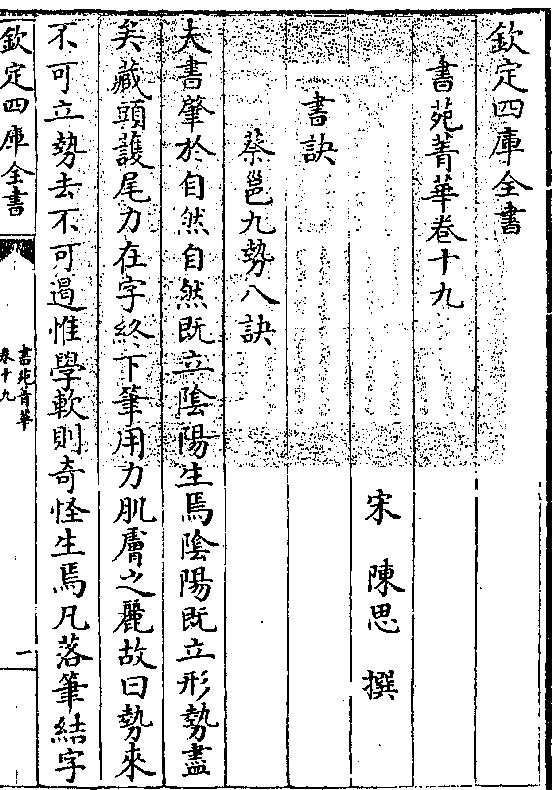 欽定四庫全書
書苑菁華卷十九
宋 陳思 撰
書訣
蔡邕九勢八訣
夫書肇於自然自然既立陰陽生焉陰陽既立形勢盡
矣藏頭護尾力在字終下筆用力肌膚之麗故曰勢來
不可立勢去不可遏惟學軟則奇怪生焉凡落筆結字
欽定四庫全書
書苑菁華
卷十九
一